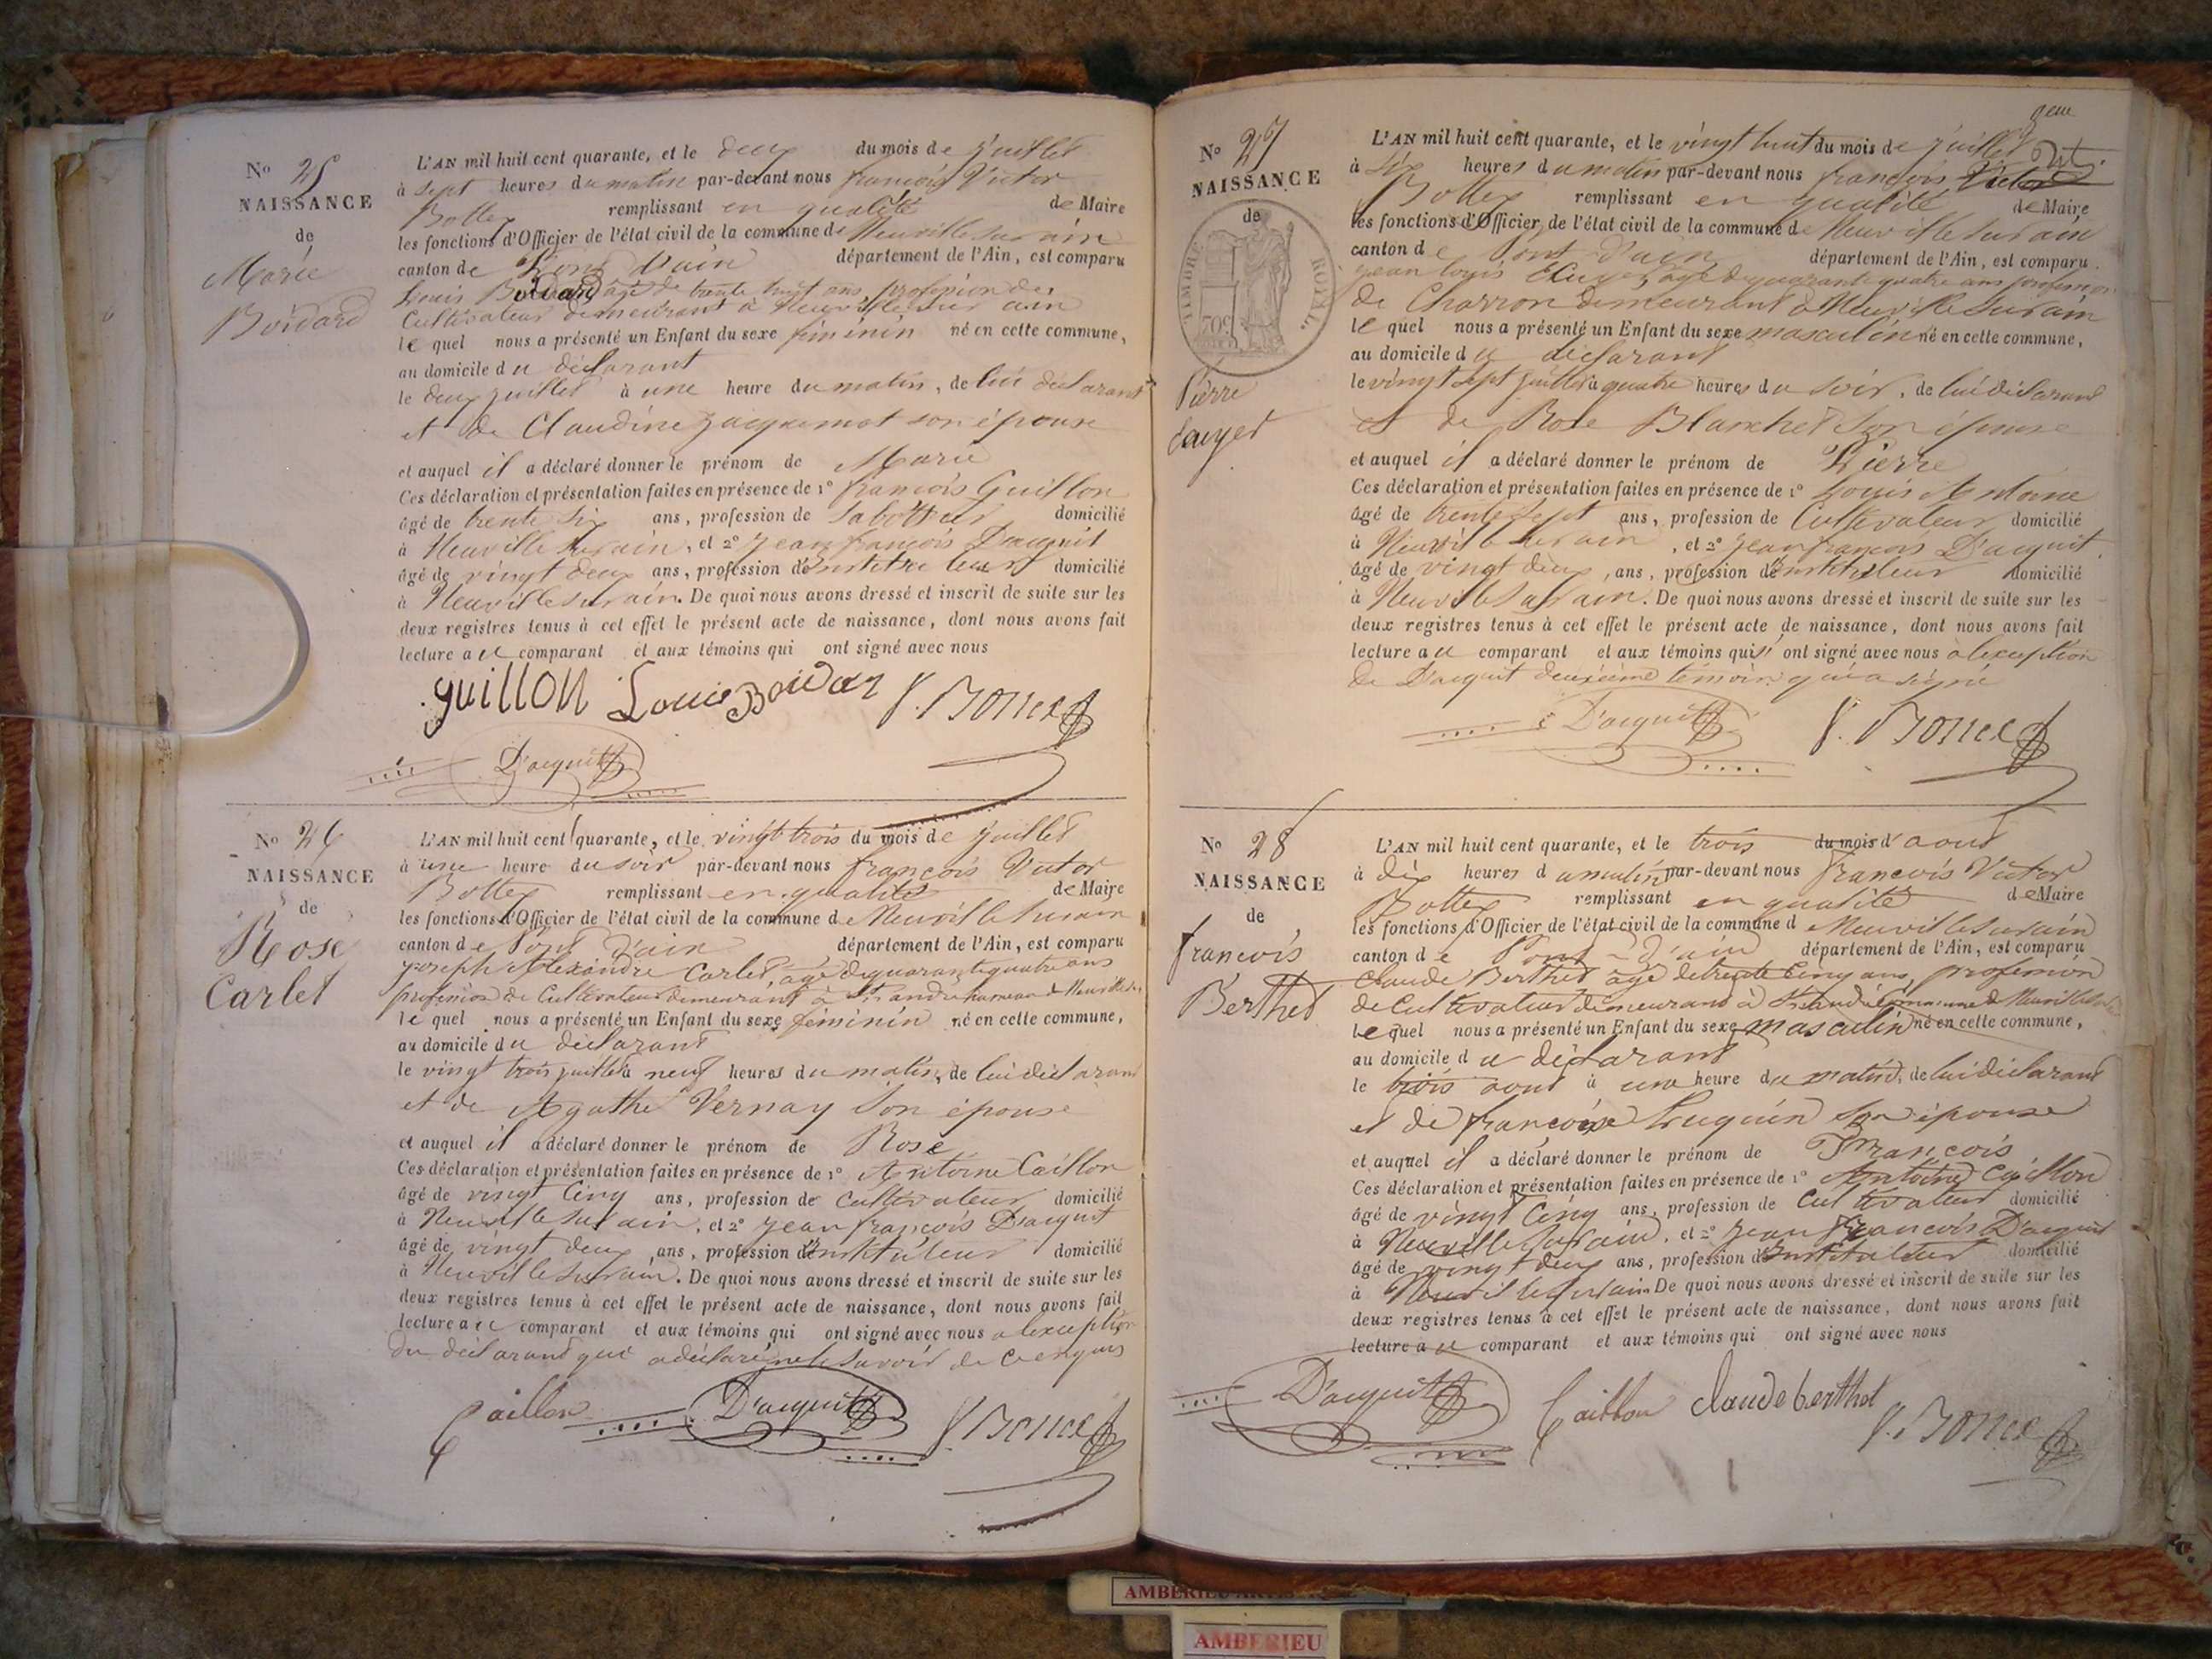 No 25
NAISSANCE
de
Marie
Boidard
L'AN mil huit cent quarante, et le deux du mois de juillet
à sept heures du matin par-devant nous françois Victor
Bottex remplissant en qualité de Maire
les fonctions d'Officier de l'état civil de la commune de Neuville sur ain
canton de Pont d'ain département de l'Ain, est comparu
Louis Boidard âgé de trente huit ans profession de
Cultivateur demeurant à Neuville sur ain
lequel nous a présenté un Enfant du sexe féminin né en cette commune,
au domicile du déclarant
le deux juillet à une heure du matin, de lui déclarant
et de Claudine jacquemot son épouse
et auquel il a déclaré donner le prénom de Marie
Ces déclaration et présentation faites en présence de 1° françois Guillon
âgé de trente six ans, profession de Sabottier domicilié
à Neuville sur ain, et 2° jean françois D'acquit
âgé de vingt deux ans, profession d'instituteur domicilié
à Neuville sur ain. De quoi nous avons dressé et inscrit de suite sur les
deux registres tenus à cet effet le présent acte de naissance, dont nous avons fait
lecture au comparant et aux témoins qui ont signé avec nous
guillon Louis Boidar f. Bottex
D'acquit
No 26
NAISSANCE
de
Rose
Carlet
L'AN mil huit cent quarante, et le vingt trois du mois de juillet
à une heure du soir par-devant nous françois Victor
Bottex remplissant en qualité de Maire
les fonctions d'Officier de l'état civil de la commune de Neuville sur ain
canton de Pont d'ain département de l'Ain, est comparu
joseph Alexandre Carlet, âgé de quarante quatre ans
profession de Cultivateur demeurant à St andré hameau de Neuville
lequel nous a présenté un Enfant du sexe féminin né en cette commune,
au domicile du déclarant
le vingt trois juillet à neuf heures du matin, de lui déclarant
et de Agathe Vernay son épouse
et auquel il a déclaré donner le prénom de Rose
Ces déclaration et présentation faites en présence de 1° Antoine Caillon
âgé de vingt cinq ans, profession de cultivateur domicilié
à Neuville sur ain, et 2° jean françois D'acquit
âgé de vingt deux ans, profession d'instituteur domicilié
à Neuville sur ain. De quoi nous avons dressé et inscrit de suite sur les
deux registres tenus à cet effet le présent acte de naissance, dont nous avons fait
lecture au comparant et aux témoins qui ont signé avec nous a lexception
du déclarant qui a déclaré ne le savoir de ce enquis
Caillon D'acquit f. Bottex
No 27
NAISSANCE
de
TIMBRE ROYAL
Pierre
L'AN mil huit cent quarante, et le vingt huit du mois de juillet
à six heures du matin par-devant nous françois Victor
Bottex remplissant en qualité de Maire
les fonctions d'Officier de l'état civil de la commune de Neuville sur ain
canton de Pont d'ain département de l'Ain, est comparu
jean louis âgé de quarante quatre ans profession
de Charron demeurant à Neuville sur ain
lequel nous a présenté un Enfant du sexe masculin né en cette commune,
au domicile du déclarant
le vingt sept juillet à quatre heures du soir, de lui déclarant
et de Rose Blanchet son épouse
et auquel il a déclaré donner le prénom de Pierre
Ces déclaration et présentation faites en présence de 1° Louis Antoine
âgé de trente sept ans, profession de Cultivateur domicilié
à Neuville sur ain, et 2° jean françois D'acquit
âgé de vingt deux, ans, profession d'instituteur domicilié
à Neuville sur ain. De quoi nous avons dressé et inscrit de suite sur les
deux registres tenus à cet effet le présent acte de naissance, dont nous avons fait
lecture au comparant et aux témoins qui ont signé avec nous à lexception
de D'acquit deuxième témoin qui a signé
D'acquit f. Bottex
No 28
NAISSANCE
de
francois
Berthet
L'AN mil huit cent quarante, et le trois du mois d'aout
à dix heures du matin par-devant nous francois Victor
Bottex remplissant en qualité de Maire
les fonctions d'Officier de l'état civil de la commune de Neuville sur ain
canton de Pont d'ain département de l'Ain, est comparu
Claude Berthet âgé de trente cinq ans, profession
de cultivateur demeurant à St andré commune de Neuville
lequel nous a présenté un Enfant du sexe masculin né en cette commune,
au domicile du déclarant
le trois aout à une heure du matin, de lui déclarant
et de francoise son épouse
et auquel il a déclaré donner le prénom de Francois
Ces déclaration et présentation faites en présence de 1° Antoine Caillon
âgé de vingt cinq ans, profession de cultivateur domicilié
à Neuville sur ain, et 2° jean francois D'acquit
âgé de vingt deux ans, profession d'instituteur domicilié
à Neuville sur ain De quoi nous avons dressé et inscrit de suite sur les
deux registres tenus à cet effet le présent acte de naissance, dont nous avons fait
lecture au comparant et aux témoins qui ont signé avec nous
D'acquit Caillon claude berthet f. Bottex
AMBERIEU
AMBERIEU